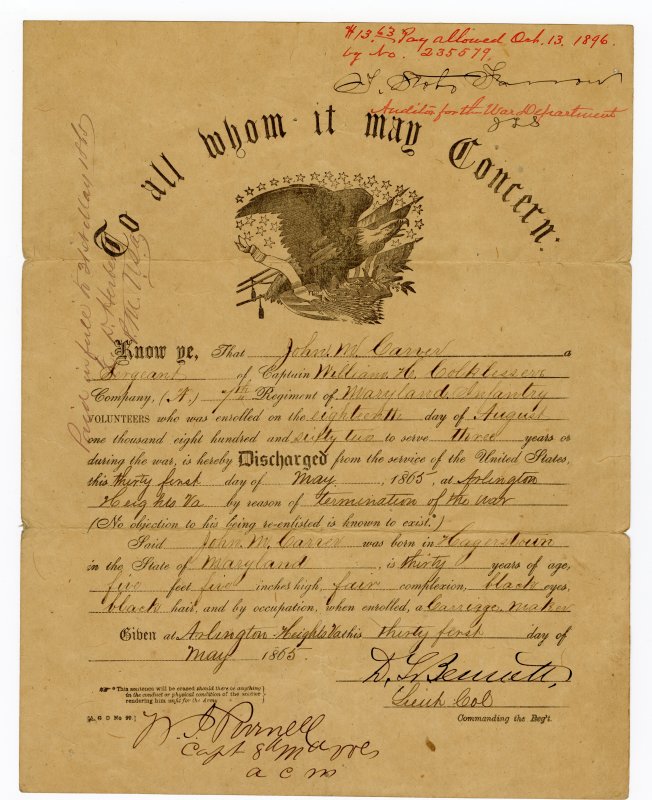 $13.63 Pay allowed Oct. 13. 1896.
by No. 235579,
Auditor for the War Department
To all whom it may Concern:
Paid in full to 31st May 1865
Know ye, That John M Carver a
Sergeant of Captain William H Colklessere
Company, (A.) 7th Regiment of Maryland Infantry
VOLUNTEERS who was enrolled on the eighteenth day of August
one thousand eight hundred and sixty two to serve three years or
during the war, is hereby Discharged from the service of the United States,
this thirty first day of May, 1865, at Arlington
Heights Va by reason of termination of the war
(No objection to his being re-enlisted is known to exist.*)
Said John M. Carver was born in Hagerstown
in the State of Maryland, is thirty years of age,
five feet five inches high, fair complexion, black eyes,
black hair, and by occupation, when enrolled, a Carriage Maker
Given at Arlington Heights Va this thirty first day of
May 1865.
☞*This sentence will be erased should there be anything
in the conduct or physical condition of the soldier
rendering him unfit for the Army.
[A. G. O. No 99.]
Lieut Col
Commanding the Reg't.
Capt 8th Md Vols
a c m